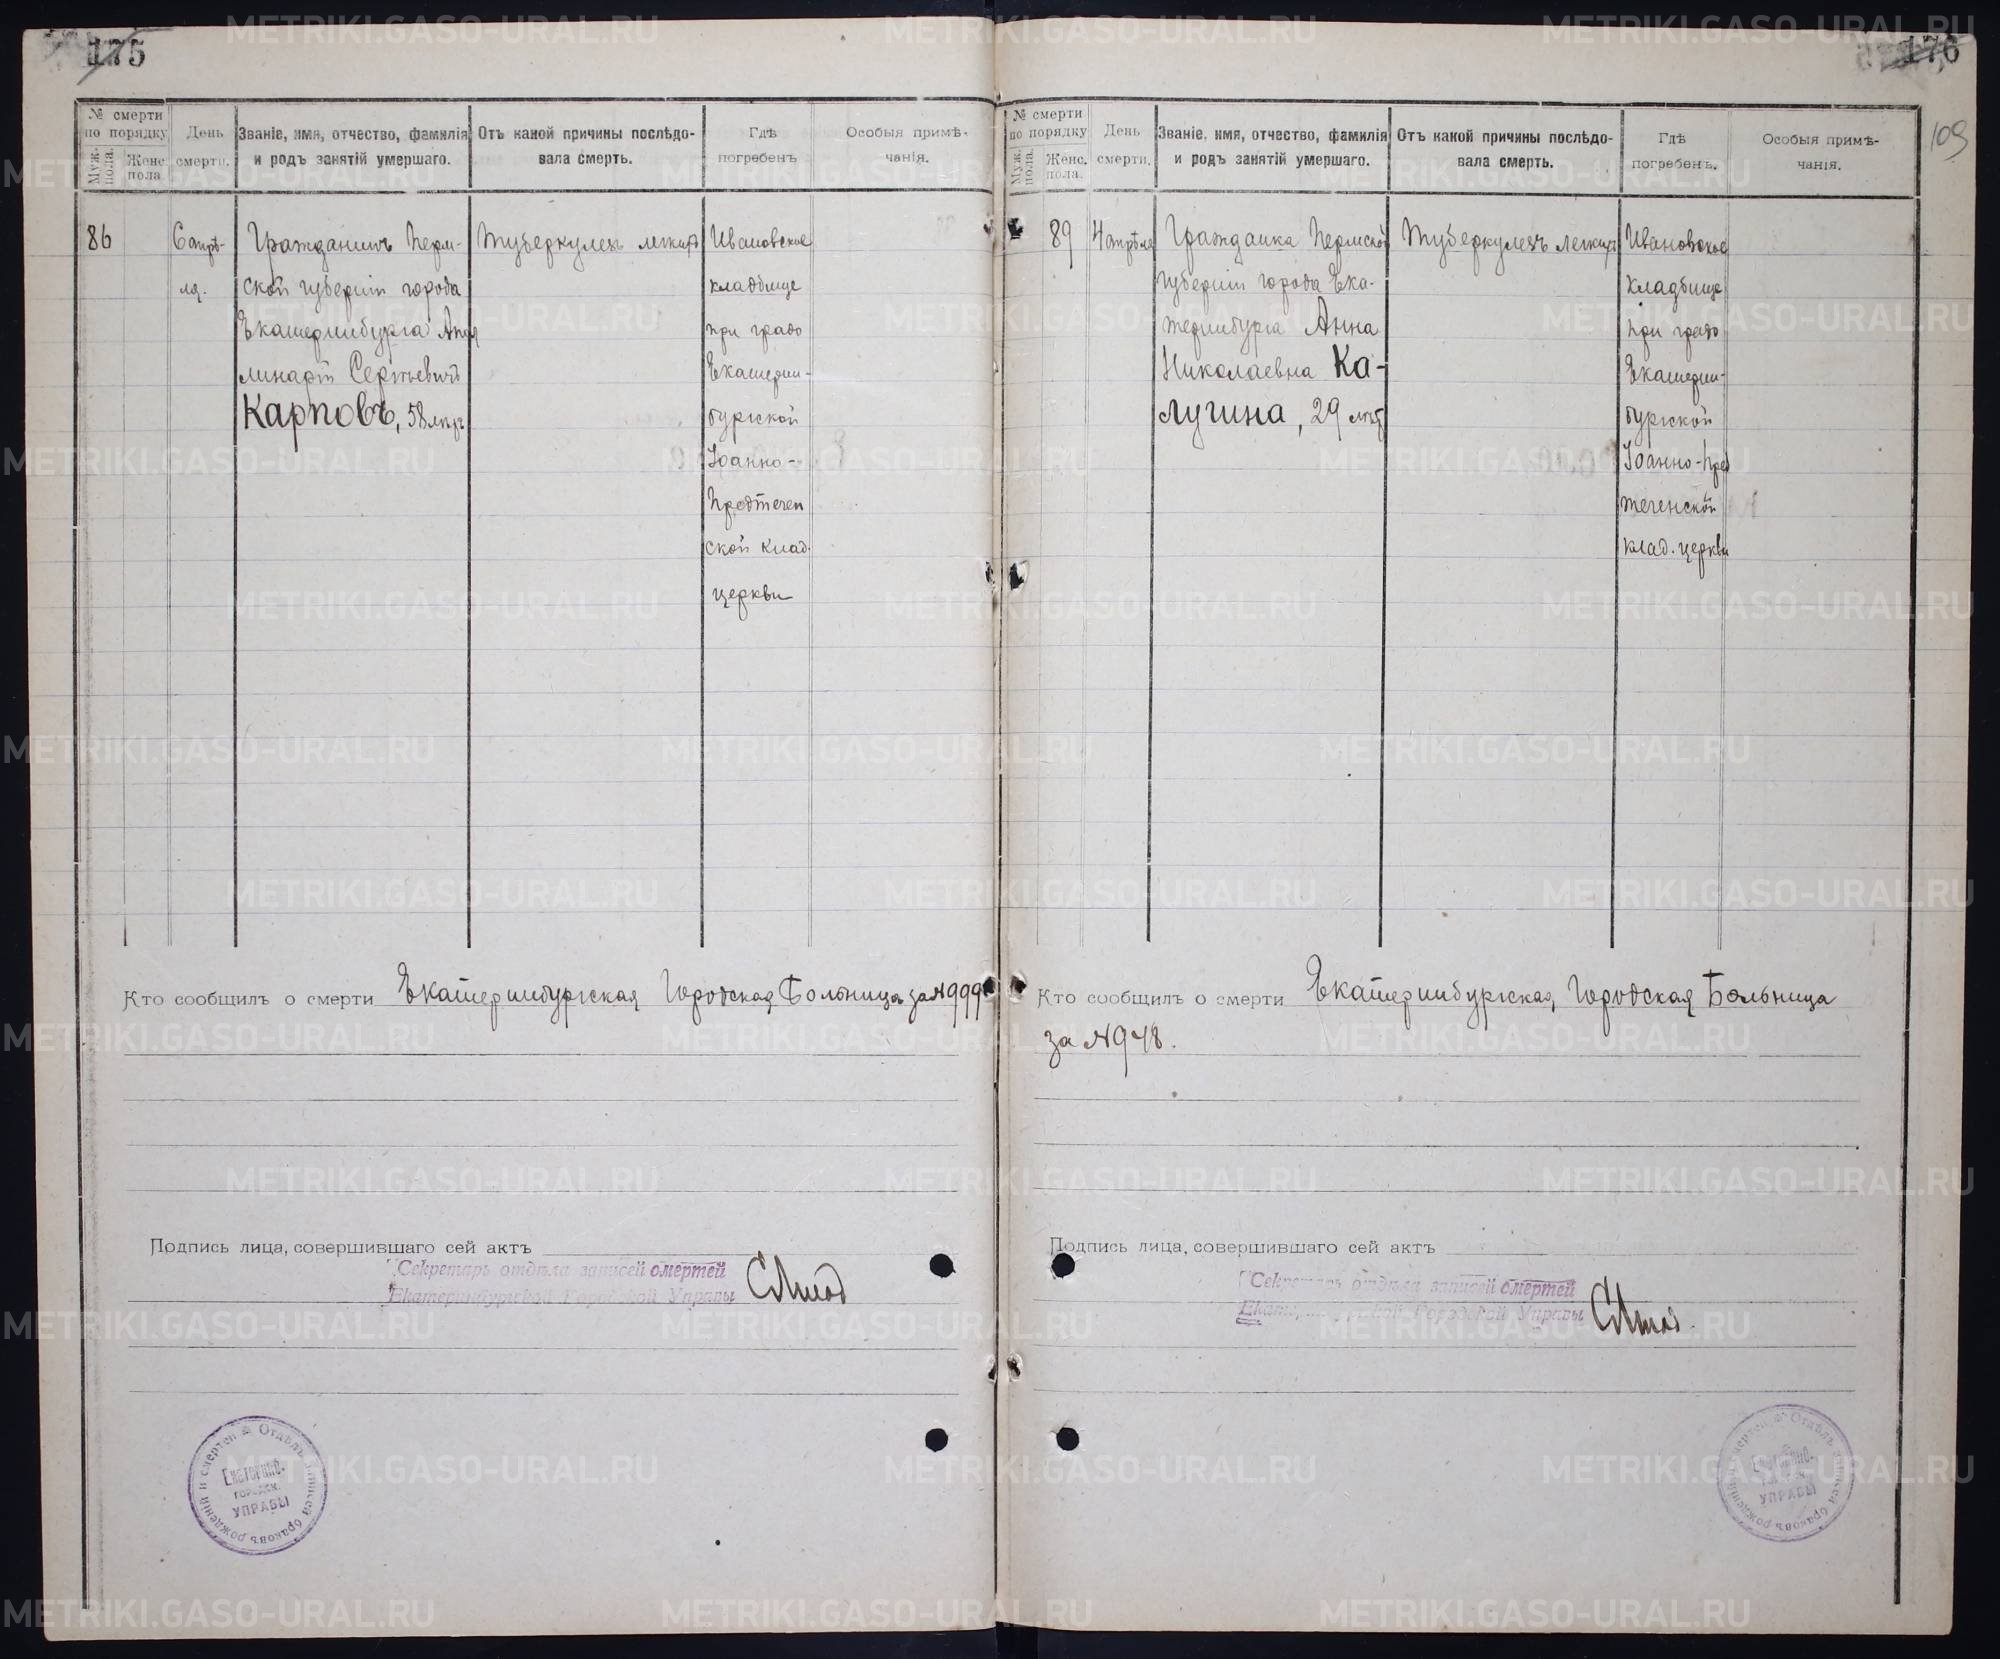 175
№ смерти по порядку
Муж. пола.
Женс. пола
День смерти.
Званіе, имя, отчество, фамилія и родъ занятій умершаго.
Отъ какой причины послѣдовала смерть.
Гдѣ погребенъ
Особыя примѣчанія.
86
6 апрѣ-
ля.
Гражданинъ Перм-
ской губерніи города
Екатеринбурга Апол
линарій Сергѣевичъ
Карповъ, 58 лѣтъ
Туберкулезъ легкихъ
Ивановское
кладбище
при градо
Екатерин-
бургской
Іоанно-
Предтечен
ской клад.
церкви
Кто сообщилъ о смерти Екатеринбургская Городская Больница за №999
Подпись лица, совершившаго сей актъ
Секретарь отдѣла записей смертей
Екатеринбургской Городской Управы
Отдѣлъ записей браковъ рожденій и смертей
Екатеринб.
городск.
УПРАВЫ
176
109
№ смерти по порядку
Муж. пола.
Женс. пола.
День смерти.
Званіе, имя, отчество, фамилія и родъ занятій умершаго.
Отъ какой причины послѣдовала смерть.
Гдѣ погребенъ.
Особыя примѣчанія.
89
4 апрѣля
Гражданка Пермской
губерніи города Ека-
теринбурга Анна
Николаевна Ка-
лугина, 29 лѣтъ
Туберкулезъ легкихъ
Ивановское
кладбище
при градо
Екатерин-
бургской
Іоанно-Пред
теченской
клад. церкви
Кто сообщилъ о смерти Екатеринбургская Городская Больница
за №948.
Подпись лица, совершившаго сей актъ
Секретарь отдѣла записей смертей
Екатеринбургской Городской Управы
Отдѣлъ записей браковъ рожденій и смертей
Екатеринб.
УПРАВЫ
METRIKI.GASO-URAL.RU